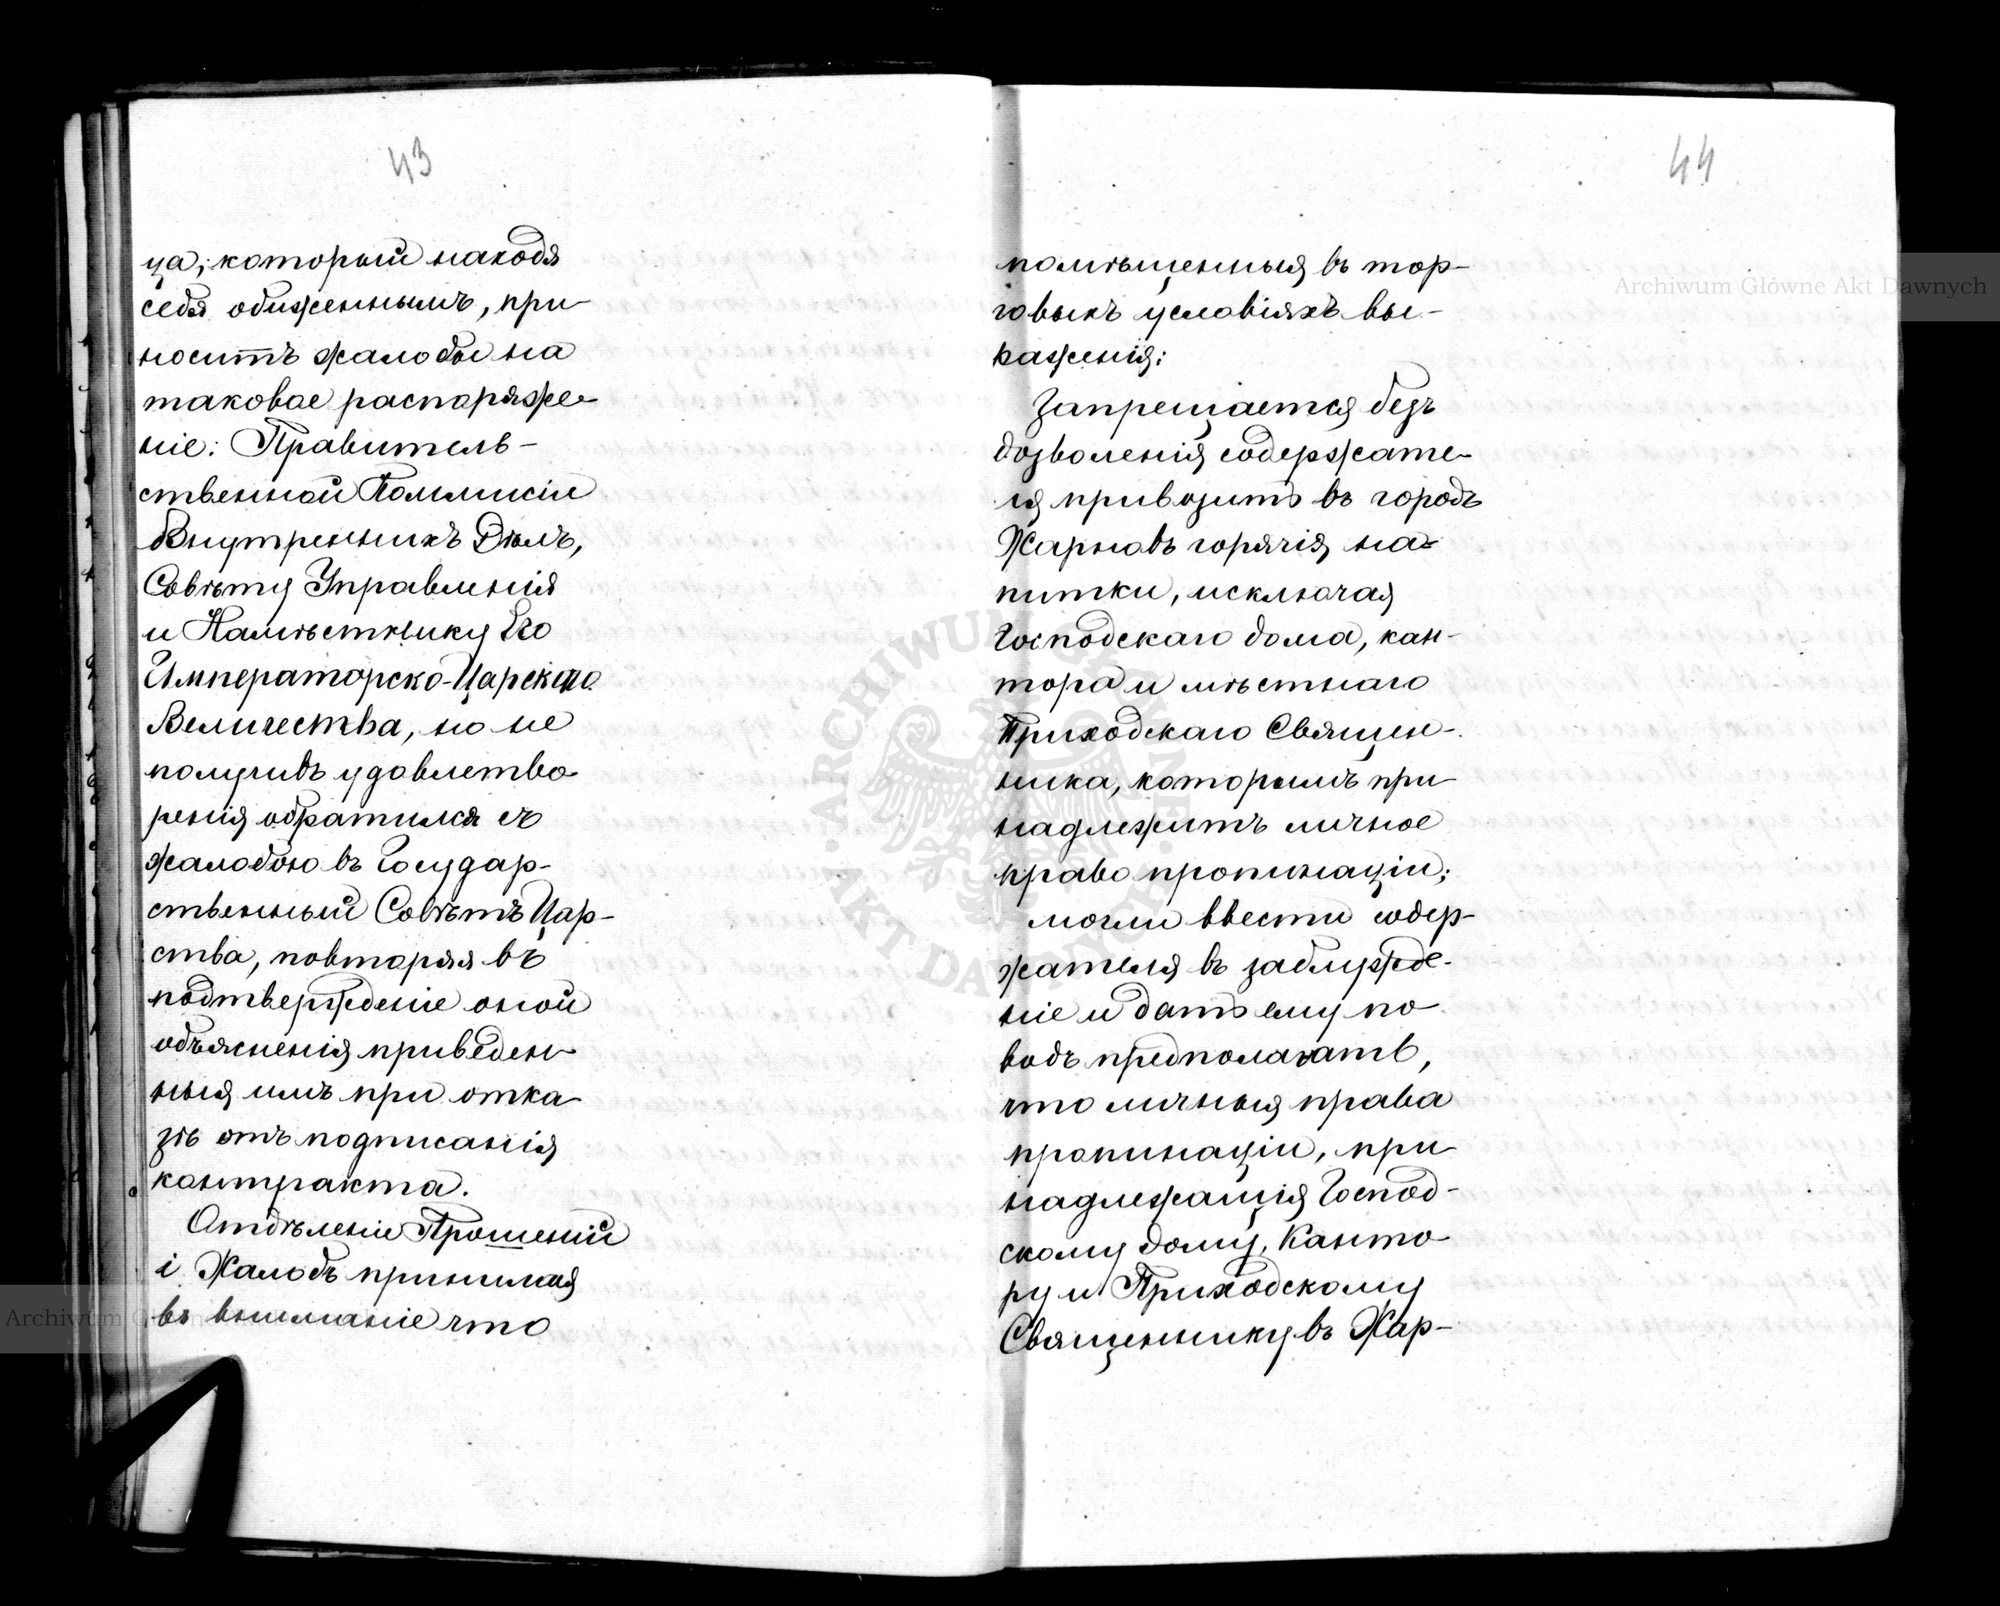 43
ца, который находя
себя обиженнымъ, при-
носитъ жалобы на
таковое распоряже-
ніе: Правитель-
ственной Коммисіи
Внутреннихъ Дѣлъ,
Совѣту Управленія
и Намѣстнику Его
Императорско-Царскаго
Величества, но не
получивъ удовлетво-
ренія обратился съ
жалобою въ Государ-
ственный Совѣтъ Цар-
ства, повторяя въ
подтвержденіе оной
объясненія приведен-
ныя имъ при отка-
зѣ отъ подписанія
контракта.
Отдѣленіе Прошеній
и Жалобъ принимая
въ вниманіе что
44
помѣщенныя въ тор-
говыхъ условіяхъ вы-
раженія:
Запрещается безъ
дозволенія содержате-
ля привозить въ городъ
Жарновъ горячія на-
питки, исключая
Господскаго дома, кан-
тора и мѣстнаго
Приходскаго Священ-
ника, которымъ при-
надлежитъ личное
право пропинаціи;
могли ввести содер-
жателя въ заблужде-
ніе и дать ему по-
водъ предполагать,
что личныя права
пропинаціи, при-
надлежащія Господ-
скому дому, Канто-
ру и Приходскому
Священнику въ Жар-
Archiwum Główne Akt Dawnych
ARCHIWUM GŁÓWNE AKT DAWNYCH